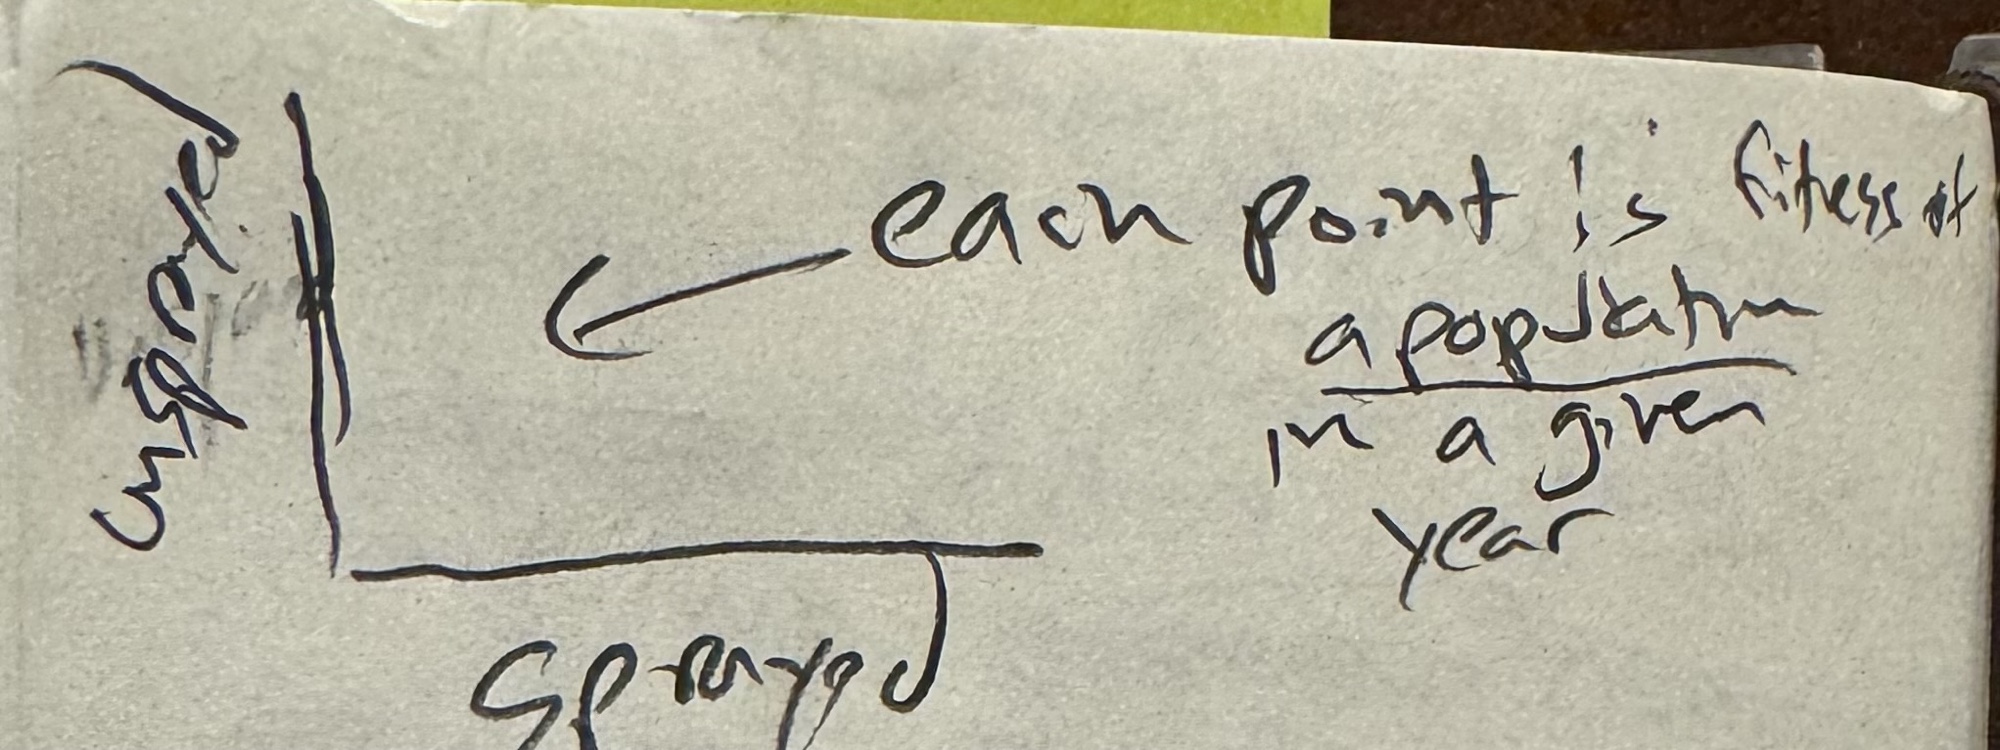 unsprayed
each point is fitness of
a population
in a given
year
sprayed